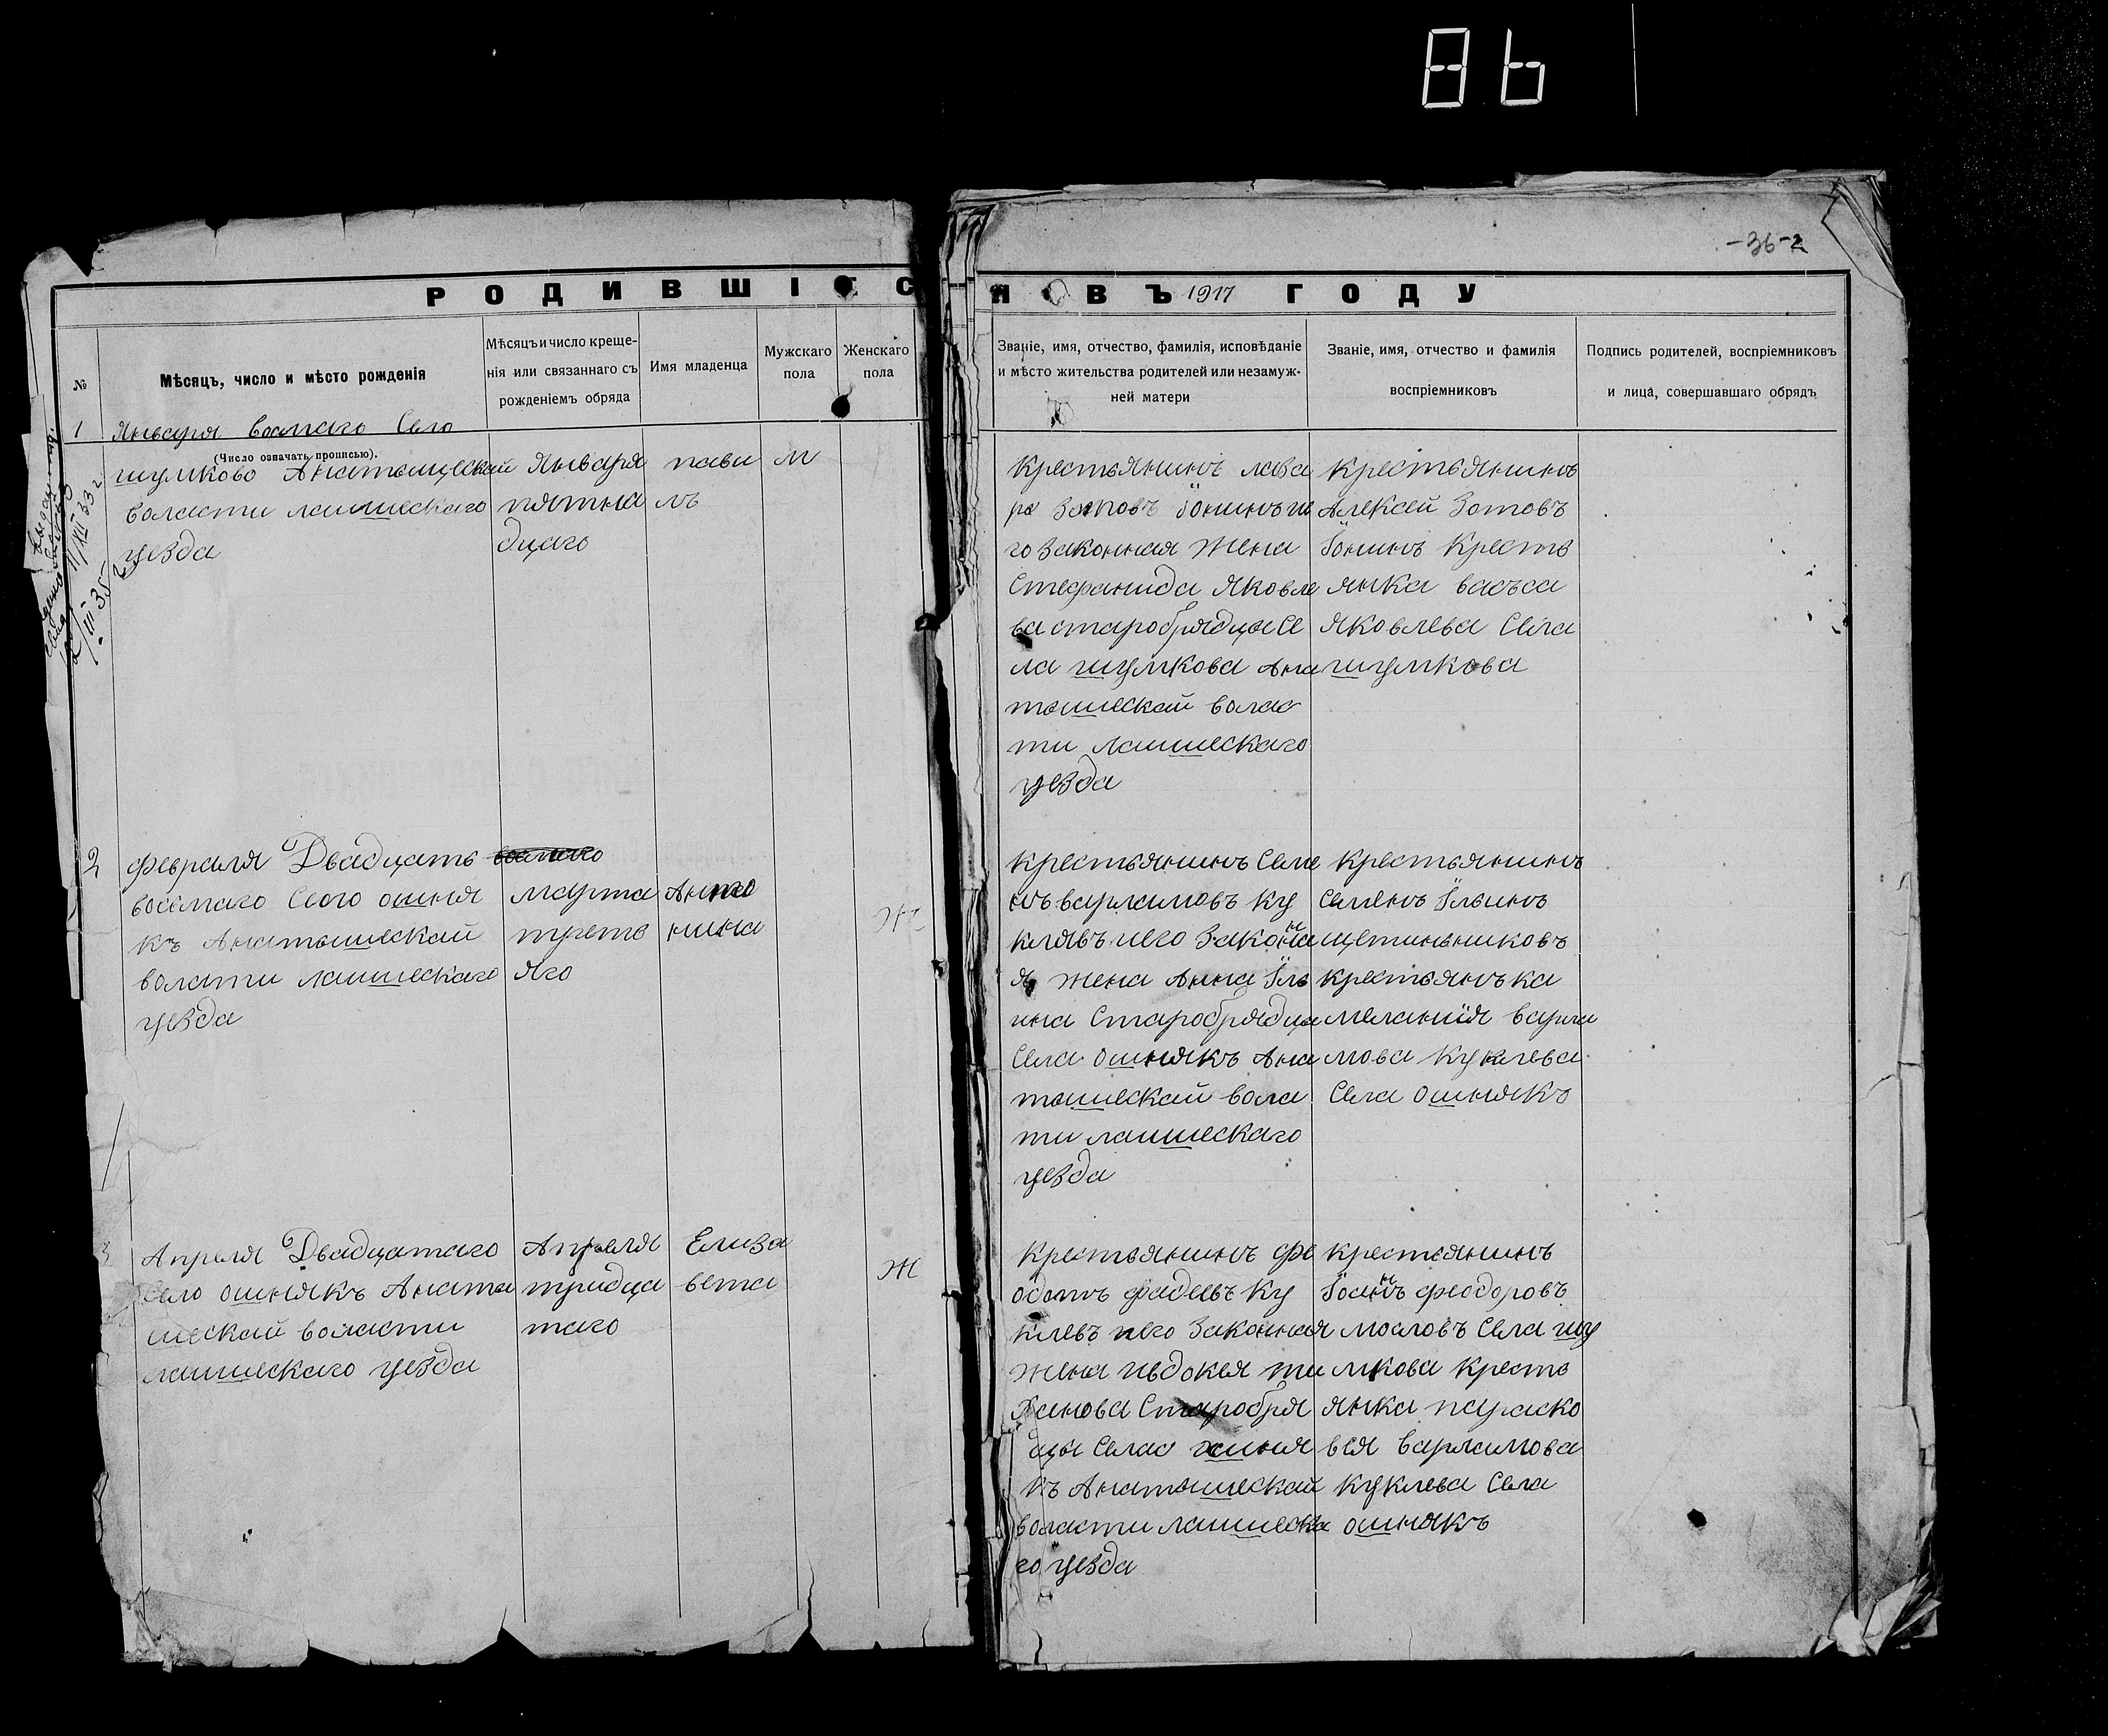 86
-36-2
РОДИВШІЕСЯ ВЪ 1917 ГОДУ
№
Мѣсяцъ, число и мѣсто рожденія
Мѣсяцъ и число креще-
нія или связаннаго съ
рожденіемъ обряда
Имя младенца
Мужскаго
пола
Женскаго
пола
Званіе, имя, отчество, фамилія, исповѣданіе
и мѣсто жительства родителей или незамуж-
ней матери
Званіе, имя, отчество и фамилія
воспріемниковъ
Подпись родителей, воспріемниковъ
и лица, совершавшаго обрядъ
1
Января восмаго Село
(Число означать прописью).
шумково Анатышескай
воласти лаишескаго
уезда
Января
пятна
дцаго
пави
лъ
м
Крестьянинъ лаза
ръ Зотовъ Іонинъ не
го Законная Жена
Стефанида Яковле
ва старобрядцы Се
ла шумкова Ана
тышескай волас
ти лаишескаго
уезда
Крестьянинъ
Алексей Зотовъ
Іонинъ Кресть
янка васъса
Яковлева Села
шумкова
11/XII 33 г
2/III 35 г
2
февраля Двадцать
восемаго Село ошня
къ Анатышескай
воласти лаишескаго
уезда
восмаго
марта
треть
яго
Анто
нина
Ж
крестьянинъ Семе
нъ варламовъ Ку
клявъ него Законна
я жена Анна Іль
ина Старобрядцы
Села ошнякъ Ана
тышескай вола
ти лаишескаго
уезда
Крестьянинъ
Семенъ Ільинъ
щетинъниковъ
крестьянъка
мелания варла
мова Куклева
Села ошнякъ
3
Апреля Двадцатаго
Село ошнякъ Анаты
шескай воласти
лаишескаго уезда
Апреля
тридца
таго
Елиза
вета
Ж
Крестьянинъ Фе
одотъ фадеевъ Ку
клевъ него Законная
жена Ивдокея ти
ханова Старобря
цы Села ошня
къ Анатышескай
воласти лаишеска
го уезда
крестьянинъ
Іоанъ феодоровъ
мословъ Села шу
мкова Кресть
янка параско
вея варламова
Куклева Села
ошнякъ